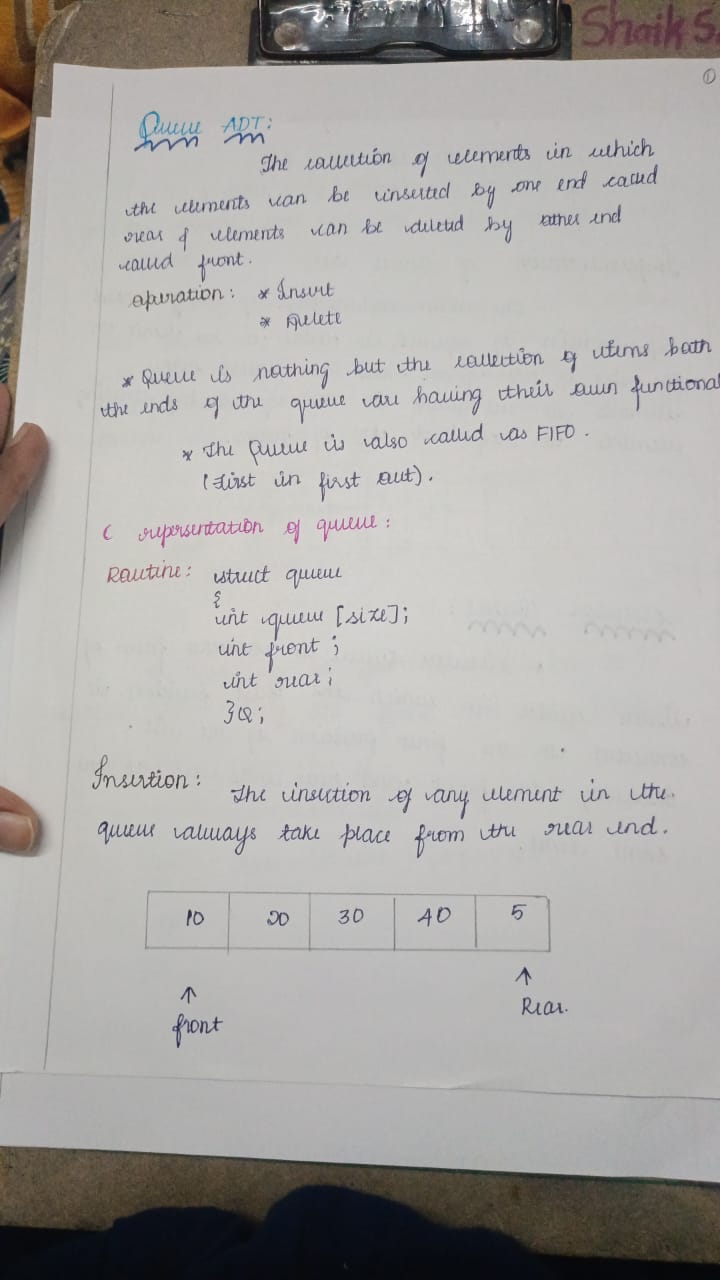 Shaik S
1
Queue ADT:
The collection of elements in which
the elements can be inserted by one end called
rear & elements can be deleted by other end
called front.
operation: * Insert
* Delete
* Queue is nothing but the collection of items both
the ends of the queue are having their own functional
* The Queue is also called as FIFO.
(First in first out).
C repersentation of queue:
Routine: struct queue
{
int queue [size];
int front;
int rear;
}Q;
Insertion: The insection of any element in the
queue always take place from the rear end.
10 20 30 40 5
↑ ↑
front Rear.